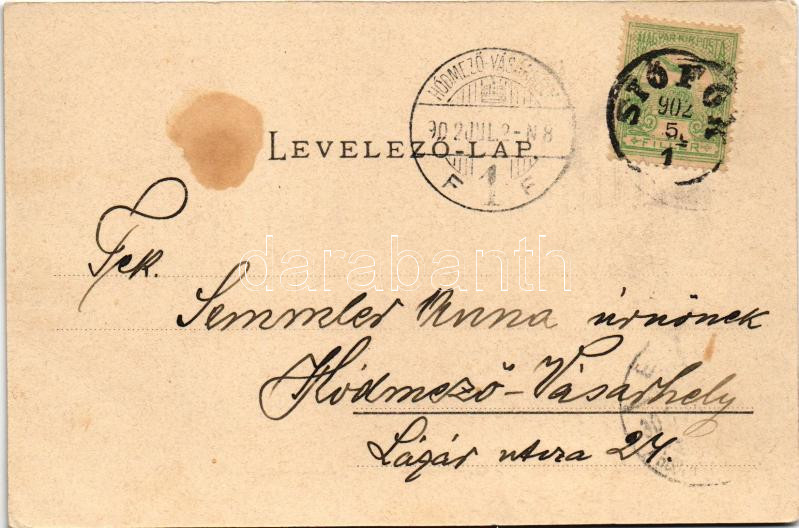 MAGYAR KIR. POSTA
SIÓFOK
902
5
1
FILLÉR
HÓDMEZŐ-VÁSÁRHELY
902 JUL. 2-N8
F 1 F
LEVELEZŐ-LAP.
darabanth
Tek.
Semmler Anna úrnőnek
Hódmező-Vásárhely
Lázár utcza 24.